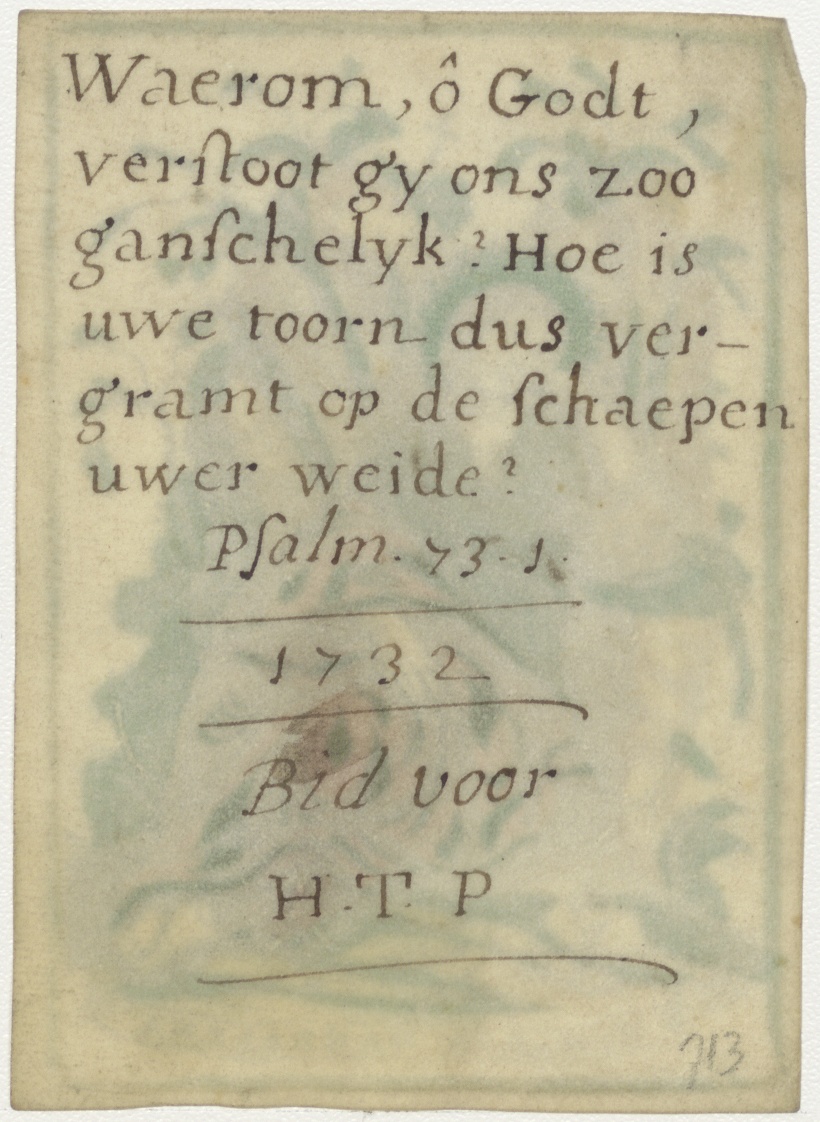 Waerom, ô Godt,
verſtoot gy ons zoo
ganſchelyk? Hoe is
uwe toorn dus ver-
gramt op de ſchaepen
uwer weide?
Pſalm. 73. 1.
1732
Bid voor
H. T. P
713